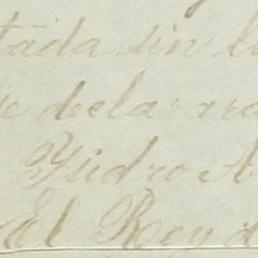 tada sin l
e declarara
Ysidro A
El Rey d